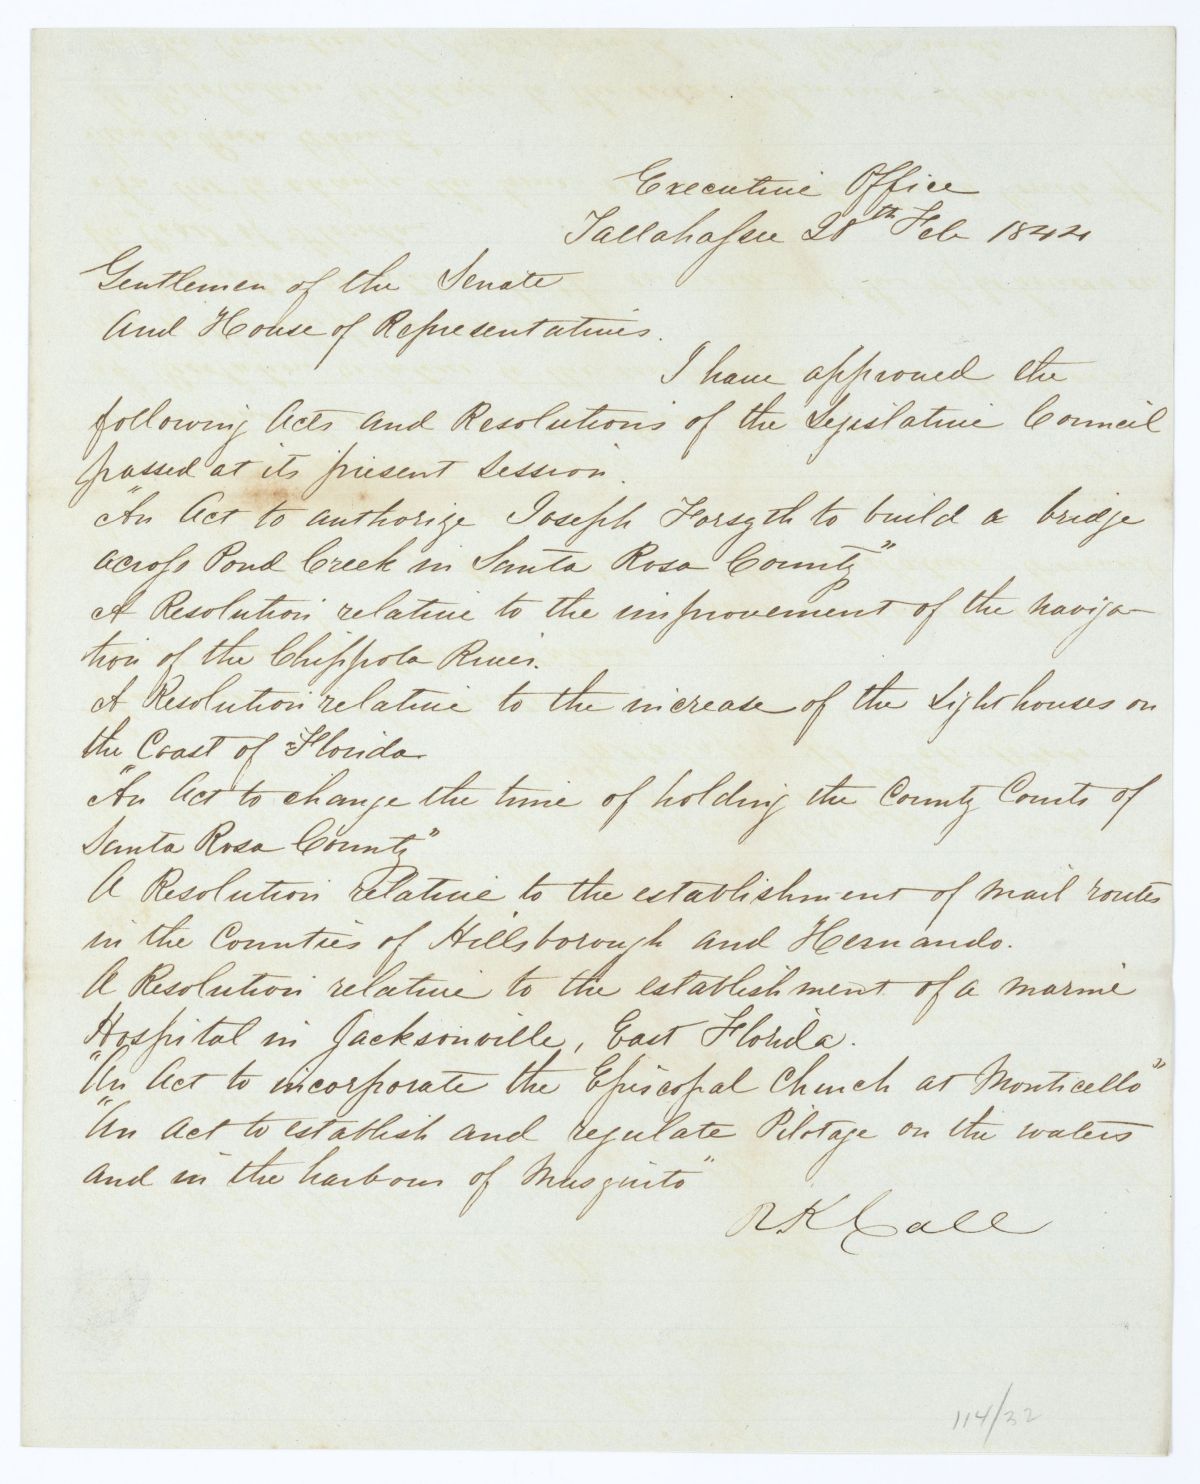 Executive Office
Tallahassee 28th Feb 1844
Gentlemen of the Senate
And House of Representatives.
I have approved the
following Acts and Resolutions of the Legislative Council
passed at its present session.
"An Act to authorize Joseph Forsyth to build a bridge
across Pond Creek in Santa Rosa County"
A Resolution relative to the improvement of the naviga-
tion of the Chippola River.
A Resolution relative to the increase of the Light houses on
the Coast of Florida
"An Act to change the time of holding the County Courts of
Santa Rosa County"
A Resolution relative to the establishment of mail routes
in the Counties of Hillsborough and Hernando.
A Resolution relative to the establishment of a marine
Hospital in Jacksonville, East Florida.
"An Act to incorporate the Episcopal Church at Monticello"
"An Act to establish and regulate Pilotage on the waters
and in the harbour of Musquito"
R. K. Call
114/32